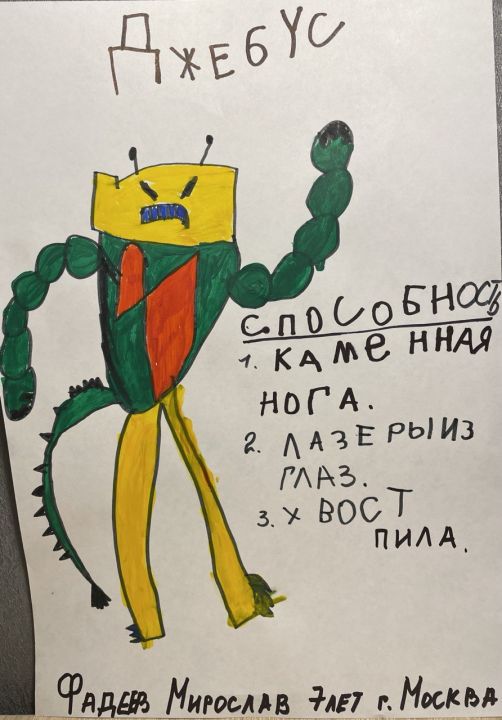 ДЖЕБУС
СПОСОБНОСТЬ
1. КАМЕННАЯ
НОГА.
2. ЛАЗЕРЫ ИЗ
ГЛАЗ.
3. ХВОСТ
ПИЛА.
ФАДЕЕВ МИРОСЛАВ 7 ЛЕТ г. МОСКВА